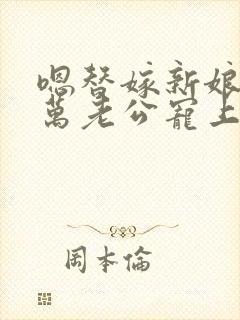 嗯替嫁新娘
萬老公寵上
周本倫